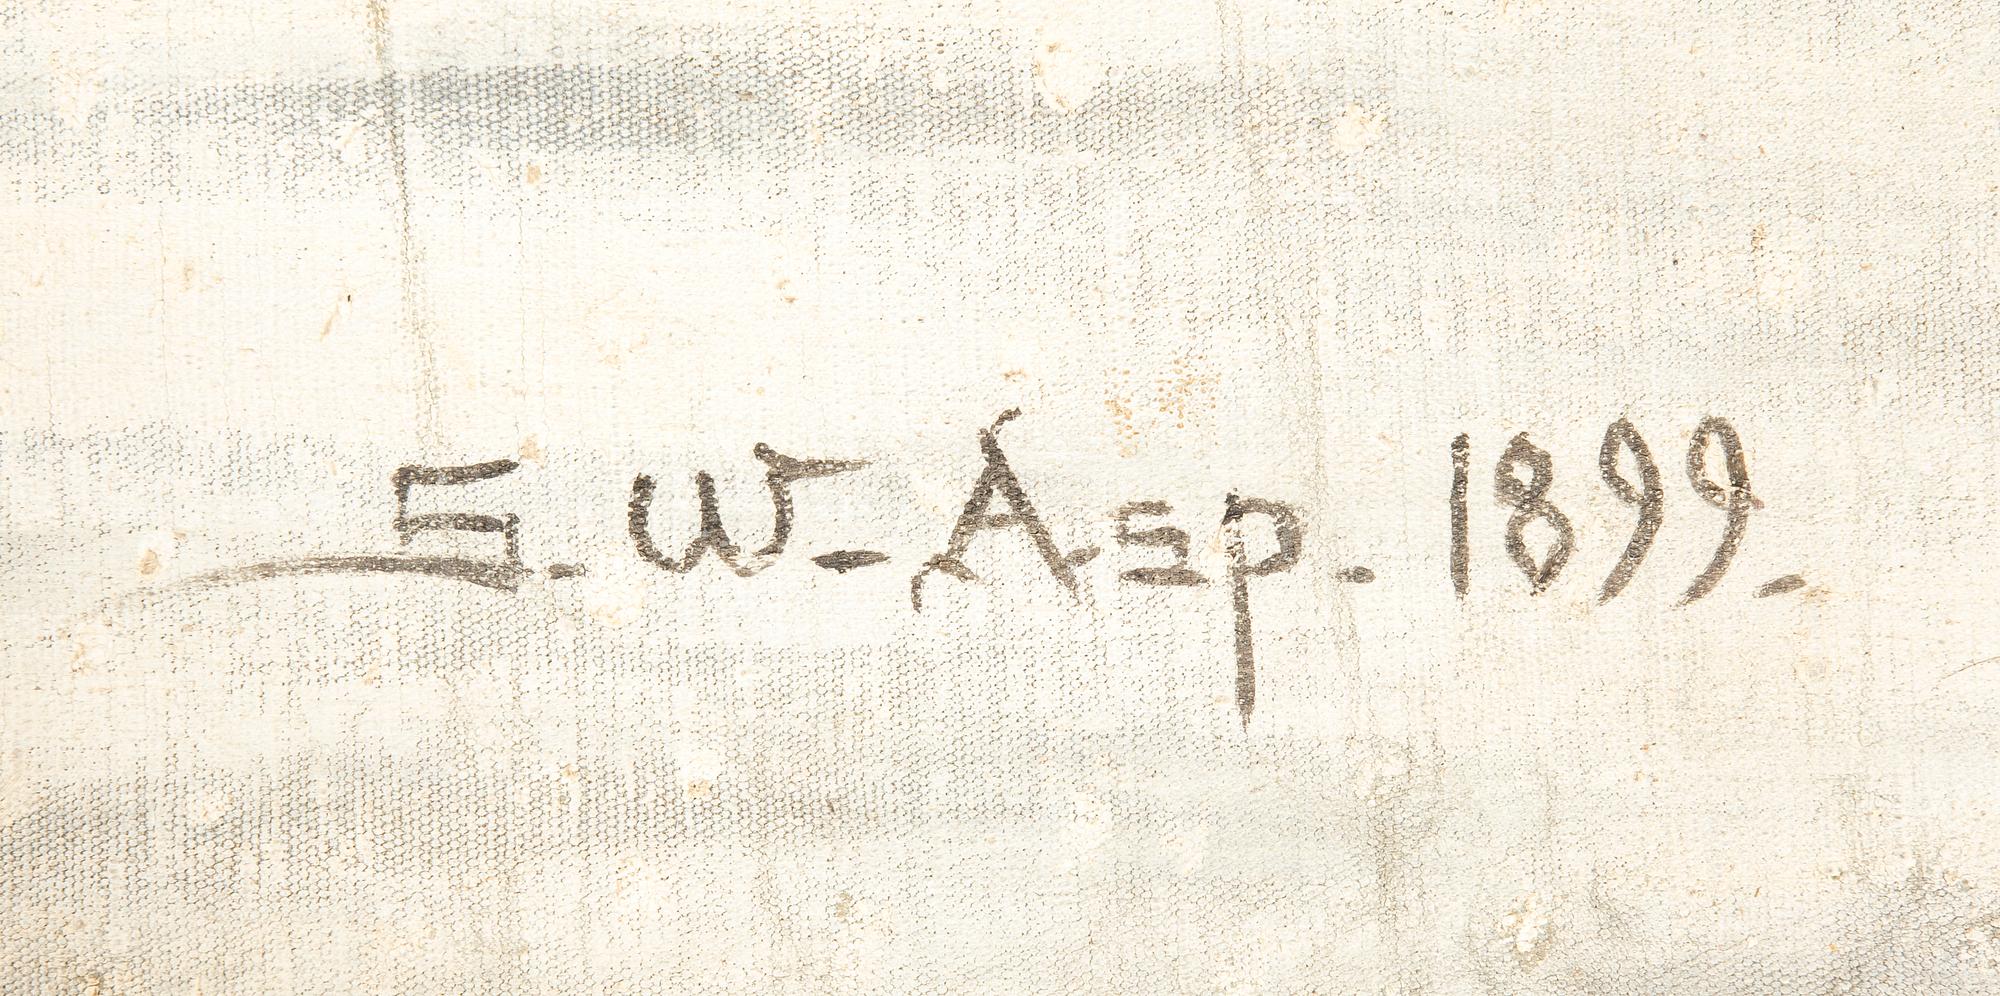 S. W - Asp. 1899.